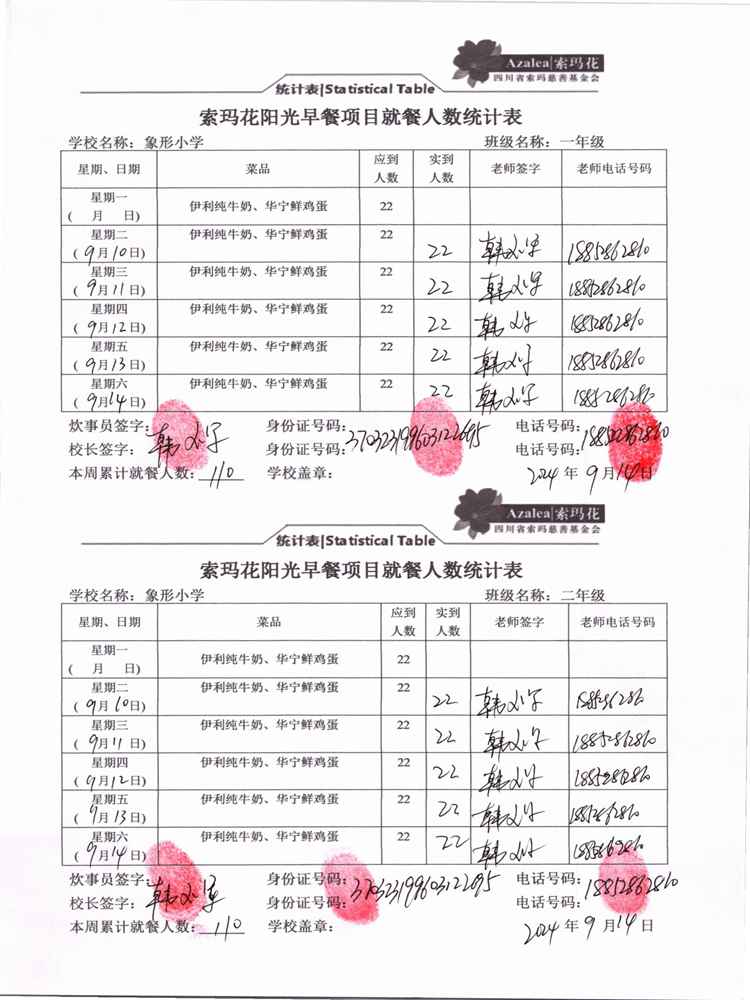 Azalea|索玛花
四川省索玛慈善基金会
统计表|Statistical Table
索玛花阳光早餐项目就餐人数统计表
学校名称：象形小学 班级名称：一年级
星期、日期 菜品 应到人数 实到人数 老师签字 老师电话号码
星期一 ( 月 日) 伊利纯牛奶、华宁鲜鸡蛋 22
星期二 (9月10日) 伊利纯牛奶、华宁鲜鸡蛋 22 22
星期三 (9月11日) 伊利纯牛奶、华宁鲜鸡蛋 22 22
星期四 (9月12日) 伊利纯牛奶、华宁鲜鸡蛋 22 22
星期五 (9月13日) 伊利纯牛奶、华宁鲜鸡蛋 22 22
星期六 (9月14日) 伊利纯牛奶、华宁鲜鸡蛋 22 22
炊事员签字： 身份证号码： 电话号码：
校长签字： 身份证号码： 电话号码：
本周累计就餐人数：110 学校盖章： 2024年9月14日
Azalea|索玛花
四川省索玛慈善基金会
统计表|Statistical Table
索玛花阳光早餐项目就餐人数统计表
学校名称：象形小学 班级名称：二年级
星期、日期 菜品 应到人数 实到人数 老师签字 老师电话号码
星期一 ( 月 日) 伊利纯牛奶、华宁鲜鸡蛋 22
星期二 (9月10日) 伊利纯牛奶、华宁鲜鸡蛋 22 22
星期三 (9月11日) 伊利纯牛奶、华宁鲜鸡蛋 22 22
星期四 (9月12日) 伊利纯牛奶、华宁鲜鸡蛋 22 22
星期五 (9月13日) 伊利纯牛奶、华宁鲜鸡蛋 22 22
星期六 (9月14日) 伊利纯牛奶、华宁鲜鸡蛋 22 22
炊事员签字： 身份证号码： 电话号码：
校长签字： 身份证号码： 电话号码：
本周累计就餐人数：110 学校盖章： 2024年9月14日